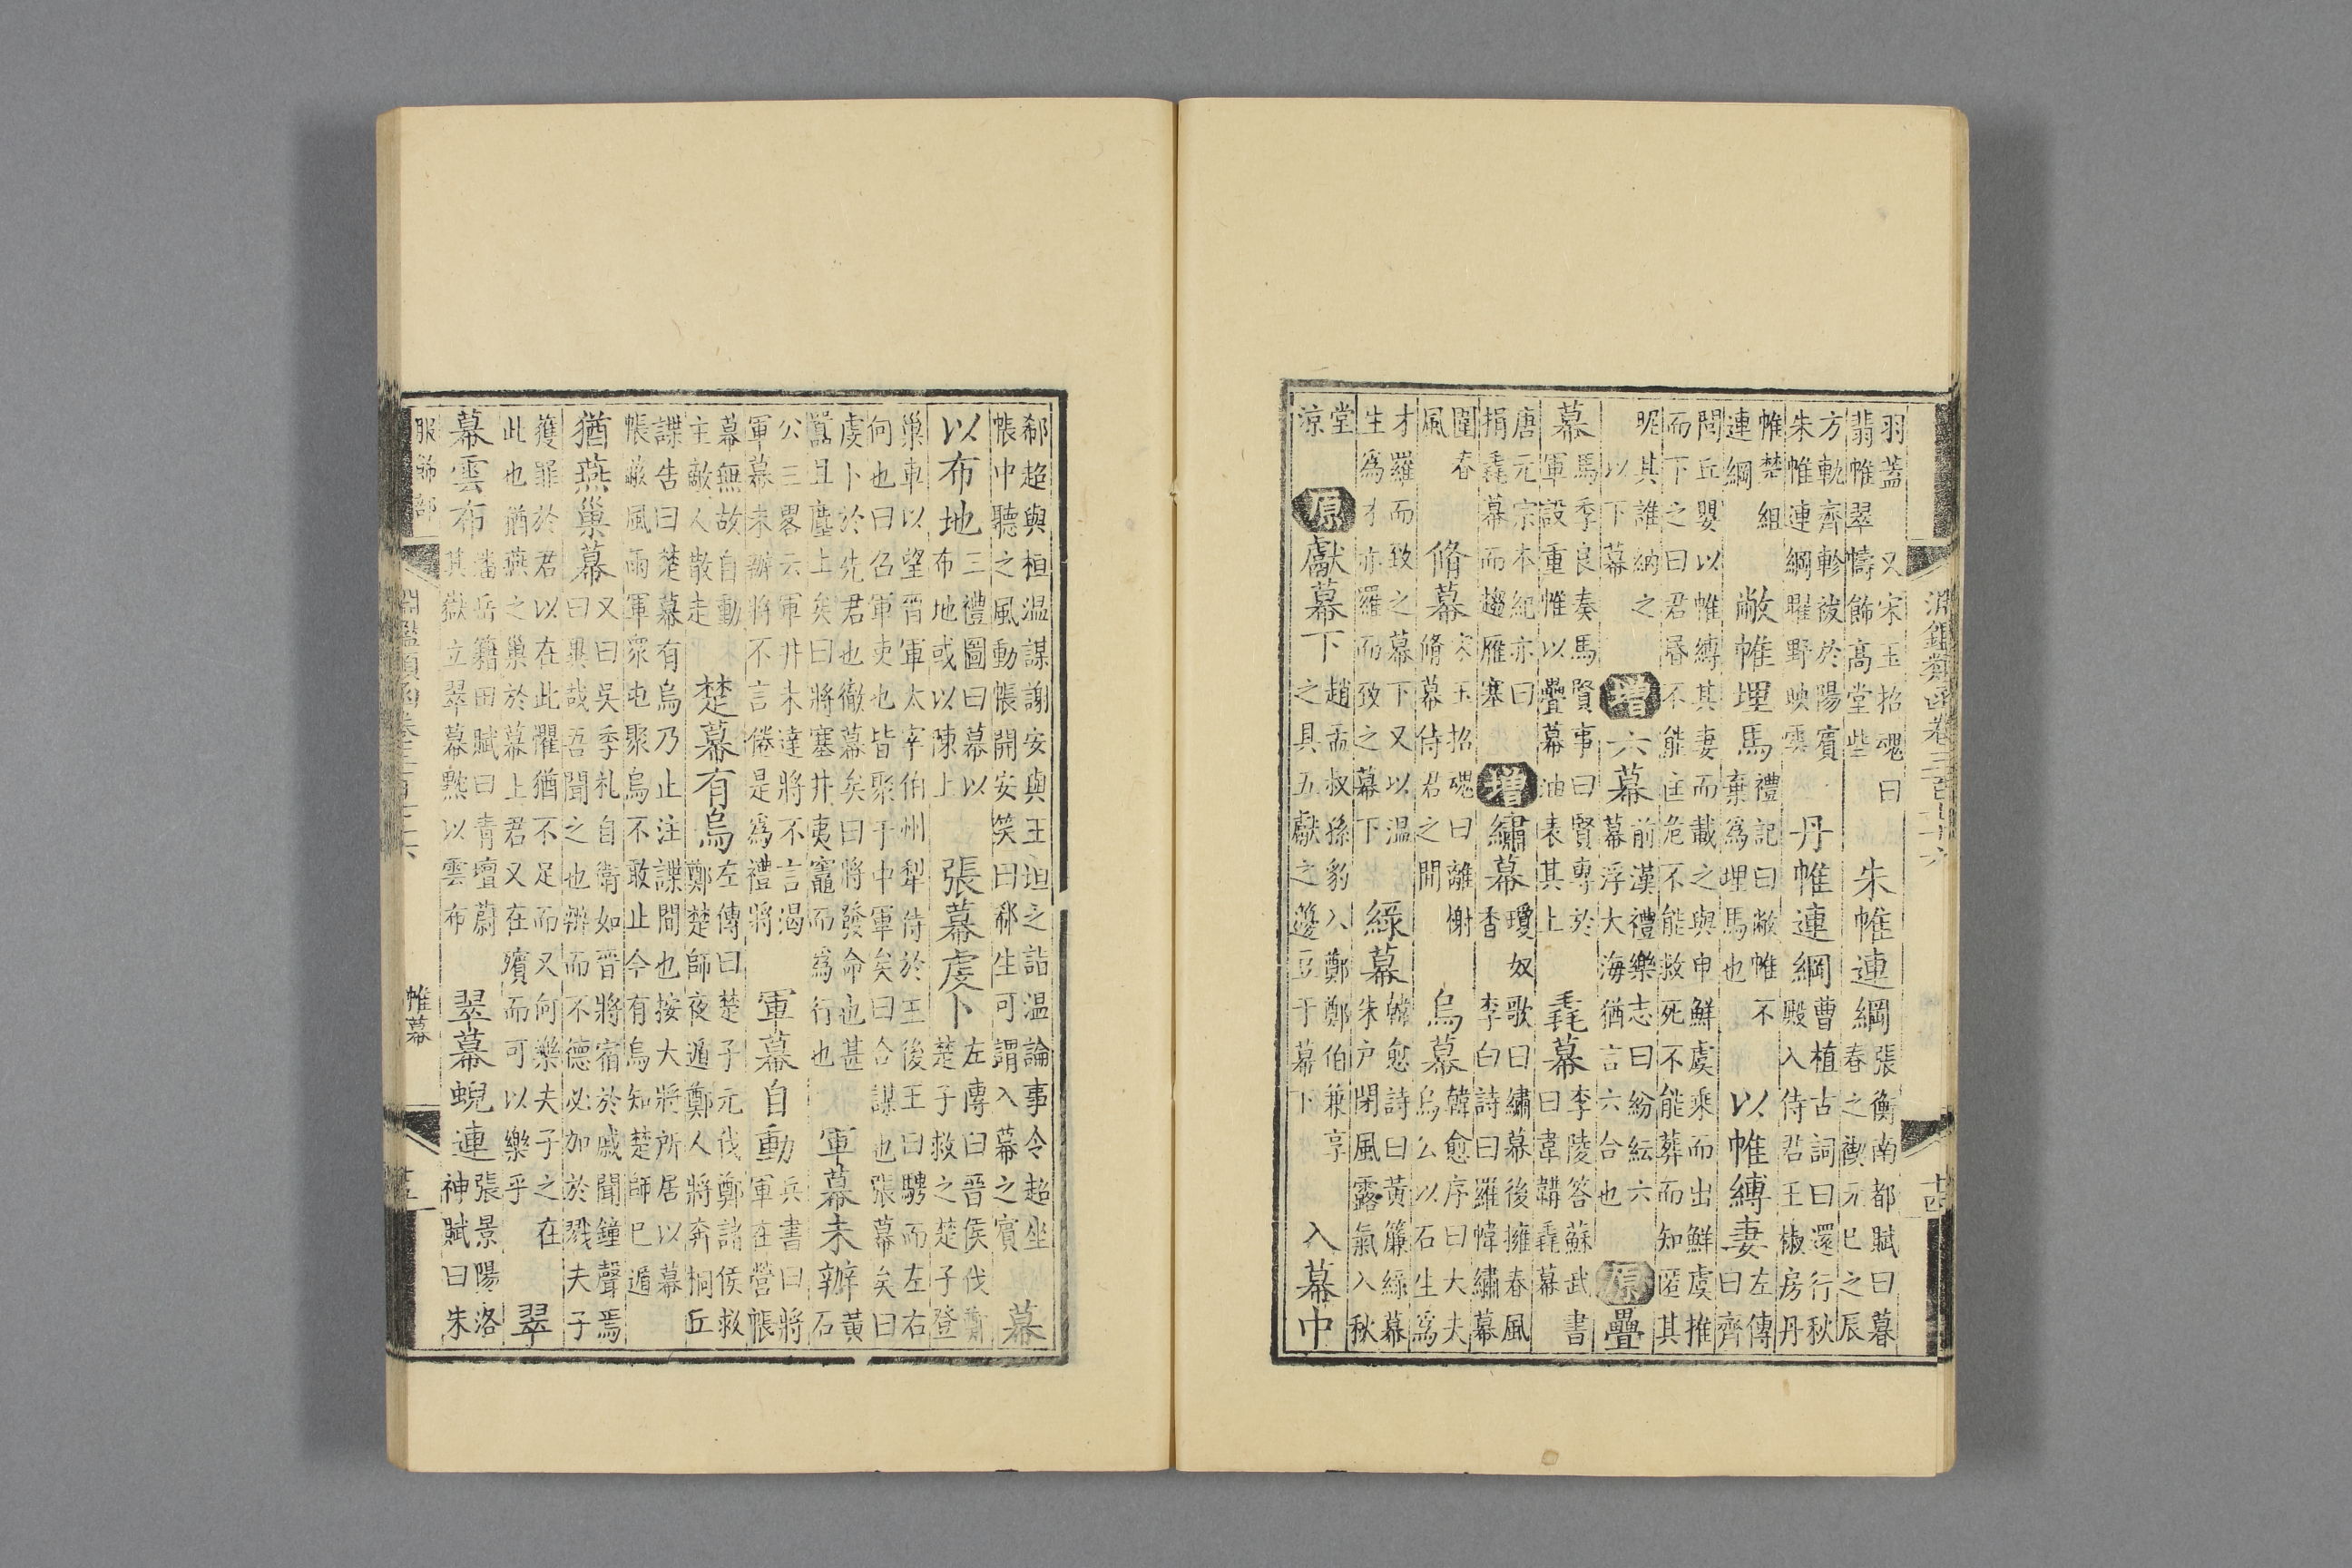 淵鑑類函卷三百七十六　十四
羽蓋　又宋玉招魂曰
翡帷翠幬飾高堂些
朱帷連綱
張衡南都賦曰暮
春之禊元巳之辰
方軌齊軫祓於陽賓
朱帷連綱曜野映雲
丹帷連綱
曹植古詞曰還行秋
殿入侍君王椒房丹
帷楚組
連綱
敝帷埋馬
禮記曰敝帷不
棄爲埋馬也
以帷縛妻
左傳
曰齊
閭丘嬰以帷縛其妻而載之與申鮮虞乘而出鮮虞推
而下之曰君昬不能匡危不能救死不能葬而知匿其
昵其誰納之
以下幕
增　六幕
前漢禮樂志曰紛紜六
幕浮大海猶言六合也
原　疊
幕
馬季良奏馬賢事曰賢專於
軍設重帷以疊幕油表其上
毳幕
李陵答蘇武書
曰韋韝毳幕
唐元宗本紀亦曰
捐毳幕而趨雁塞
增　繡幕
瓊奴歌曰繡幕後擁春風
香李白詩曰羅幃繡幕
圍春
風
脩幕
宋玉招魂曰離榭
脩幕侍君之閒
烏幕
韓愈序曰大夫
烏公以石生爲
才羅而致之幕下又以溫
生爲才亦羅而致之幕下
綠幕
韓愈詩曰黃簾綠幕
朱戶閉風露氣入秋
堂
凉
原　獻幕下
趙孟叔孫豹入鄭鄭伯兼享
之具五獻之籩豆于幕下
入幕中
郗超與桓溫謀謝安與王坦之詣溫論事令超坐
帳中聽之風動帳開安笑曰郗生可謂入幕之賓
幕
以布地
三禮圖曰幕以
布地或以陳上
張幕虔卜
左傳曰晉侯伐鄭
楚子救之楚子登
巢車以望晉軍太宰伯州犂侍於王後王曰騁而左右
何也曰召軍吏也皆聚于中軍矣曰合謀也張幕矣曰
虔卜於先君也徹幕矣曰將發命也甚
囂且塵上矣曰將塞井夷竈而爲行也
軍幕未辦
黃
石
公三畧云軍井未達將不言渴
軍幕未辦將不言倦是爲禮將
軍幕自動
兵書曰將
軍在營帳
幕無故自動
主敵人散走
楚幕有烏
左傳曰楚子元伐鄭諸侯救
鄭楚師夜遁鄭人將奔桐丘
諜告曰楚幕有烏乃止注諜間也按大將所居以幕
帳蔽風雨軍衆屯聚烏不敢止今有烏知楚師巳遁
猶燕巢幕
又曰吳季札自衛如晉將宿於戚聞鐘聲焉
曰異哉吾聞之也辨而不德必加於戮夫子
獲罪於君以在此懼猶不足而又何樂夫子之在
此也猶燕之巢於幕上君又在殯而可以樂乎
翠
幕雲布
潘岳籍田賦曰青壇蔚
其嶽立翠幕黕以雲布
翠幕蜺連
張景陽洛
神賦曰朱
服飾部　淵鑑類函卷三百七十六　帷幕　十五